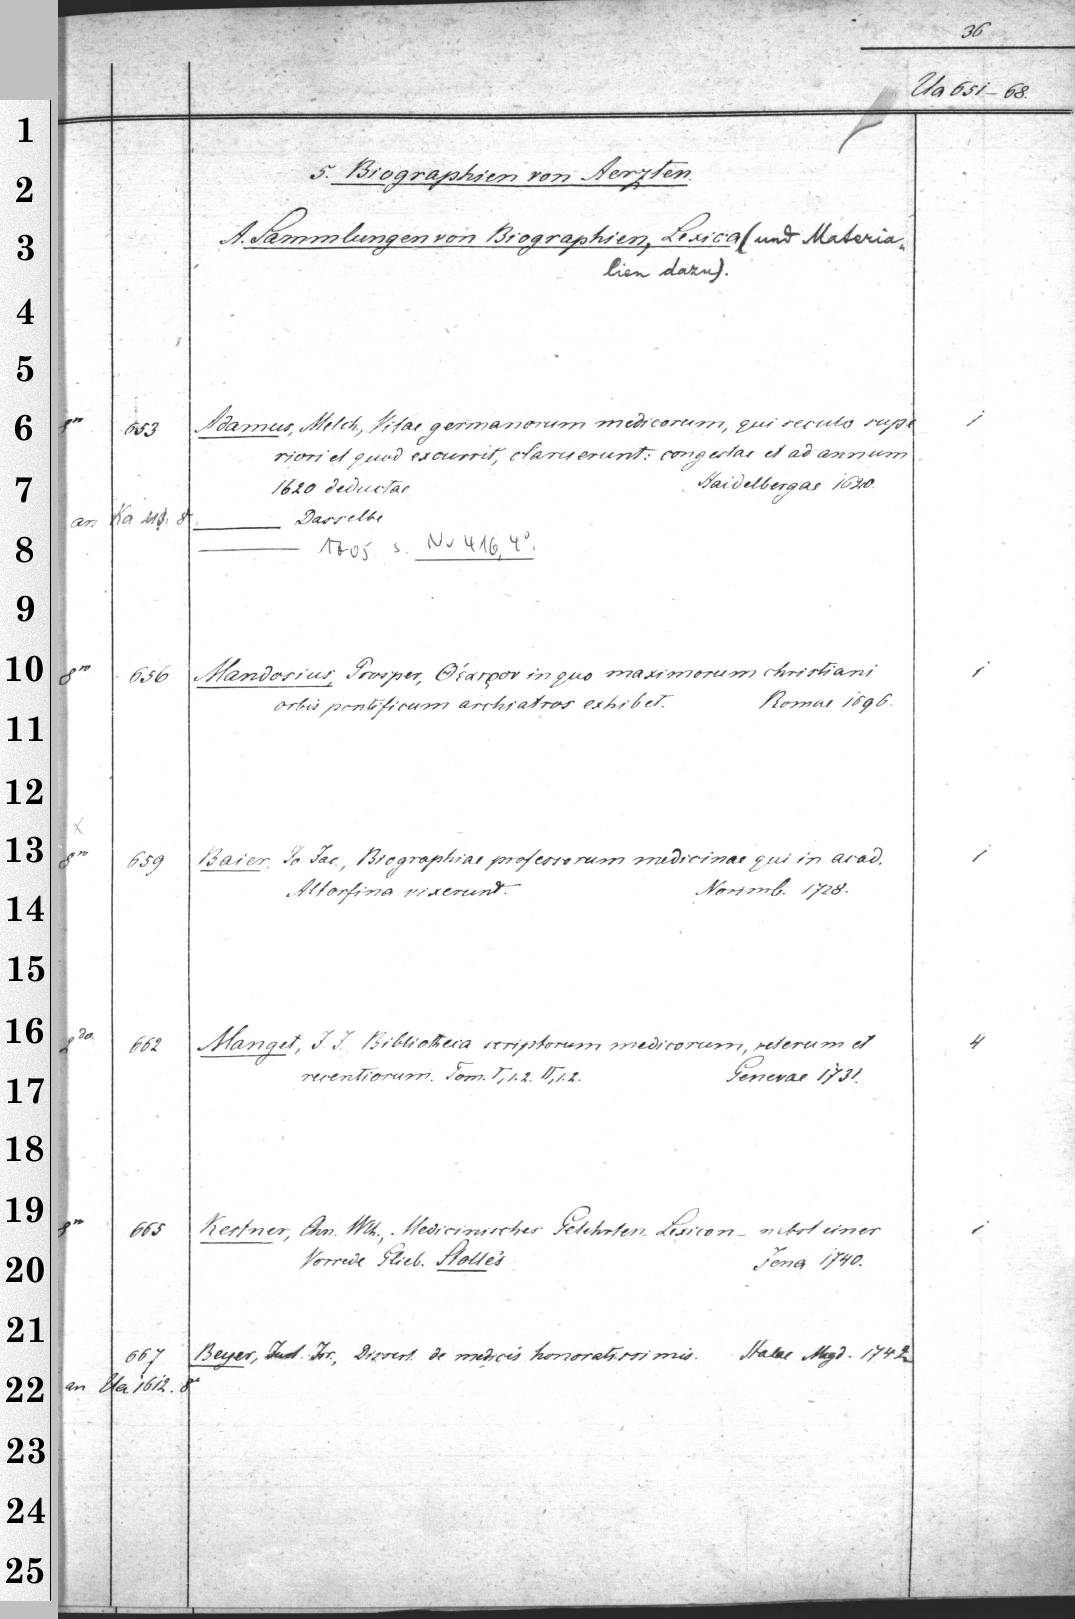 36
Ua 651-68.
5. Biographien von Aerzten.
A. Sammlungen von Biographien, Lexica (und Materia-
lien dazu).
8vo 653 Adamus, Melch, Vitae germanorum medicorum, qui seculo supe 1
riori et quod excurrit, claruerunt: congestae et ad annum
1620 deductae Haidelbergae 1620.
an Ka 8 Dasselbe
1705 s. Nv 416, 4°.
8vo 656 Mandosius, Prosper, Θέατρον in quo maximorum christiani 1
orbis pontificum archiatros exhibet. Romae 1696.
x
8vo 659 Baier, Jo Jac, Biographiae professorum medicinae qui in acad. 1
Altorfina vixerunt. Norimb. 1728.
2do 662 Manget, J. J. Bibliotheca scriptorum medicorum, veterum et 4
recentiorum. Tom. I, 1.2. II, 1.2. Genevae 1731.
8vo 665 Kestner, Chn. Wlh., Medicinisches Gelehrten Lexicon - nebst einer 1
Vorrede Glieb. Stolle's Jena 1740.
667 Beyer, Just. Isr., Dissert. de medicis honoratissimis. Halae Magd. 1742
an Ua 1612. 8°
1
2
3
4
5
6
7
8
9
10
11
12
13
14
15
16
17
18
19
20
21
22
23
24
25